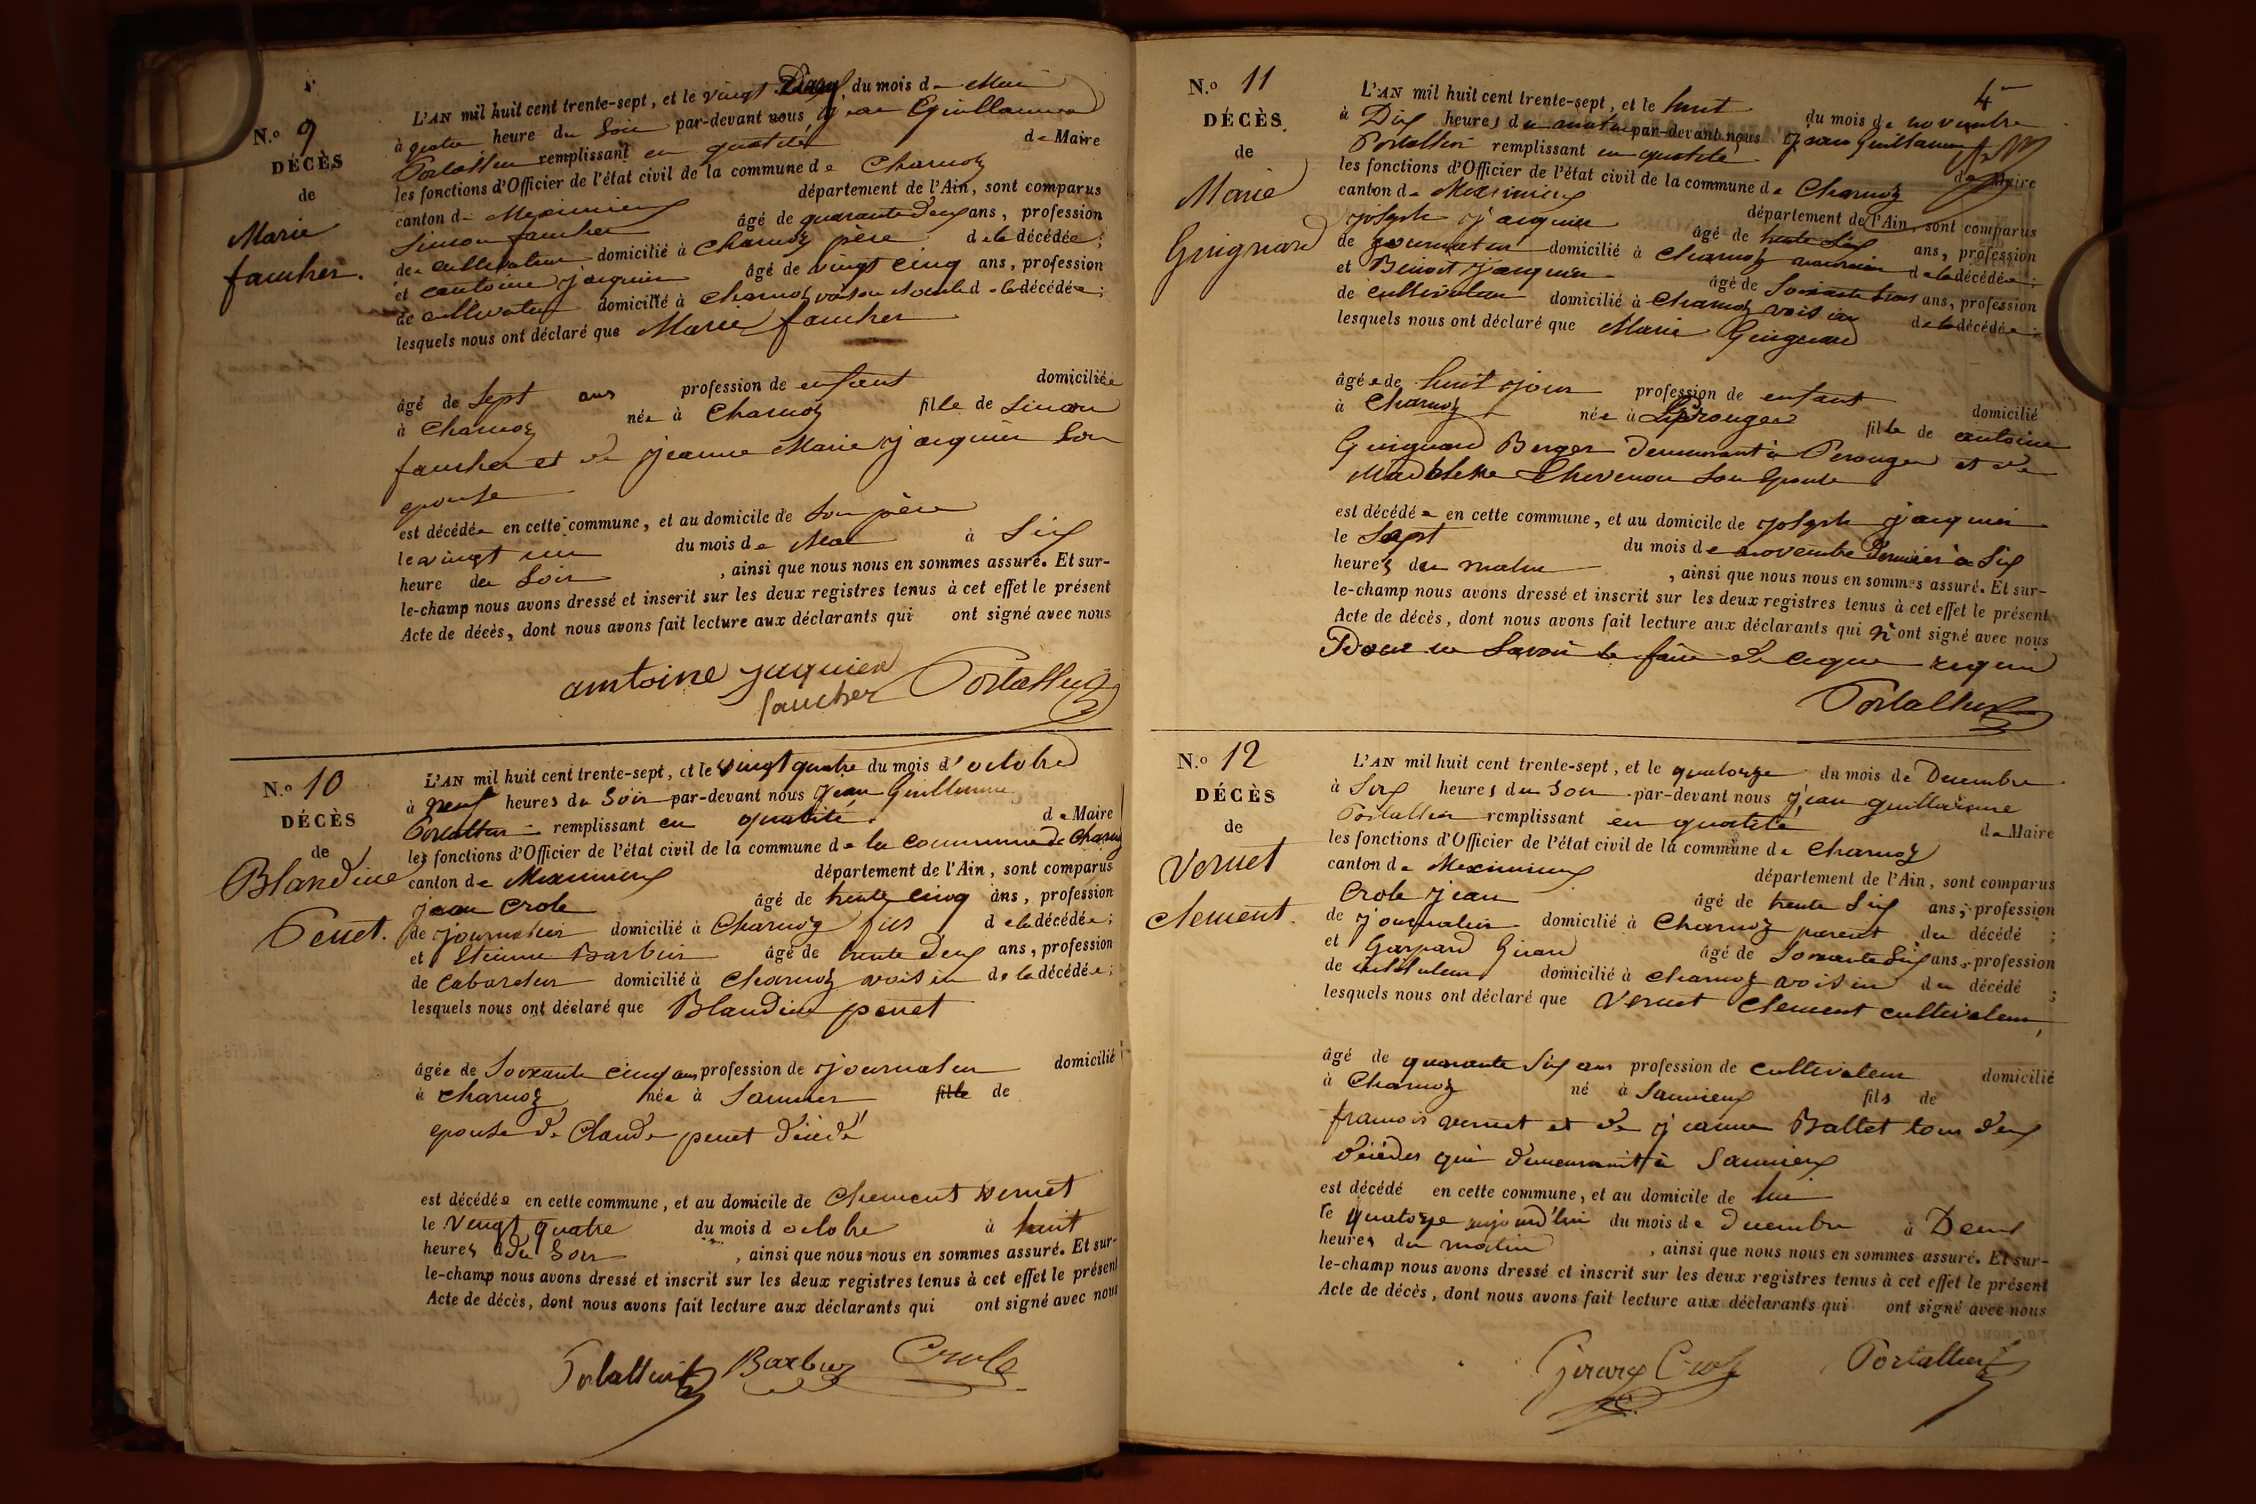 N.º 9
DÉCÈS
de
Marie
faucher.
L'AN mil huit cent trente-sept, et le vingt deux du mois de Mai
à quatre heure du Soir par-devant nous jean Guillaume
Portallier remplissant en qualité de Maire
les fonctions d'Officier de l'état civil de la commune de Charnoz
canton de Meximieux département de l'Ain, sont comparus
Simon faucher âgé de quarante deux ans, profession
de cultivateur domicilié à Charnoz père de la décédée;
et antoine jacquier âgé de vingt cinq ans, profession
de cultivateur domicilié à Charnoz voisin de la décédée;
lesquels nous ont déclaré que Marie faucher
âgé de Sept ans profession de enfant domiciliée
à Charnoz née à Charnoz fille de Simon
faucher et de jeanne Marie jacquier Son
epouse
est décédée en cette commune, et au domicile de Son père
le vingt un du mois de Mai à Six
heure du Soir, ainsi que nous nous en sommes assuré. Et sur-
le-champ nous avons dressé et inscrit sur les deux registres tenus à cet effet le présent
Acte de décès, dont nous avons fait lecture aux déclarants qui ont signé avec nous
antoine jaquier
faucher Portallier
N.º 10
DÉCÈS
de
Blandine
Penet.
L'AN mil huit cent trente-sept, et le vingt quatre du mois d'octobre
à neuf heures du Soir par-devant nous jean Guillaume
Portallier remplissant en qualité de Maire
les fonctions d'Officier de l'état civil de la commune de la commune de Charnoz
canton de Meximieux département de l'Ain, sont comparus
jean Crole âgé de trente cinq ans, profession
de journalier domicilié à Charnoz fils de la décédée;
et Etienne Barbier âgé de trente deux ans, profession
de Cabaretier domicilié à Charnoz voisin de la décédée;
lesquels nous ont déclaré que Blandine penet
âgée de Soixante cinq ans profession de journalier domicilié
à Charnoz née à fille de
epouse de Claude penet décédé
est décédée en cette commune, et au domicile de Clement vernet
le vingt quatre du mois d octobre à huit
heures du Soir, ainsi que nous nous en sommes assuré. Et sur-
le-champ nous avons dressé et inscrit sur les deux registres tenus à cet effet le présent
Acte de décès, dont nous avons fait lecture aux déclarants qui ont signé avec nous
Portallier Barbier Crole
4
N.º 11
DÉCÈS
de
Marie
Guignard
L'AN mil huit cent trente-sept, et le huit du mois de novembre
à Dix heures du matin par-devant nous jean Guillaume
Portallier remplissant en qualité de Maire
les fonctions d'Officier de l'état civil de la commune de Charnoz
canton de Meximieux département de l'Ain, sont comparus
joseph jacquier âgé de trente six ans, profession
de journalier domicilié à Charnoz de la décédée;
et Benoit jacquier âgé de Soixante trois ans, profession
de cultivateur domicilié à Charnoz voisin de la décédée;
lesquels nous ont déclaré que Marie Guignard
âgée de huit jour profession de enfant domicilié
à Charnoz née à Perouges fille de antoine
Guignard Berger demeurant à Perouges et de
Madeleine Chevenon Son epouse
est décédée en cette commune, et au domicile de joseph jacquier
le Sept du mois de novembre dernier à Six
heures du matin, ainsi que nous nous en sommes assuré. Et sur-
le-champ nous avons dressé et inscrit sur les deux registres tenus à cet effet le présent
Acte de décès, dont nous avons fait lecture aux déclarants qui n'ont signé avec nous
Pour ne Savoir le faire de ce que requis
Portallier
N.º 12
DÉCÈS
de
Vernet
Clement.
L'AN mil huit cent trente-sept, et le quatorze du mois de Decembre
à Six heures du Soir par-devant nous jean guillaume
Portallier remplissant en qualité de Maire
les fonctions d'Officier de l'état civil de la commune de Charnoz
canton de Meximieux département de l'Ain, sont comparus
Crole jean âgé de trente Six ans, profession
de journalier domicilié à Charnoz parent du décédé;
et Gaspard Girard âgé de Soixante Six ans, profession
de cultivateur domicilié à Charnoz voisin du décédé;
lesquels nous ont déclaré que Vernet Clement cultivateur,
âgé de quarante Six ans profession de cultivateur domicilié
à Charnoz né à Samieux fils de
francois vernet et de jeanne Ballet tous deux
décédes qui demeurait à Samieux
est décédé en cette commune, et au domicile de lui
le quatorze aujourd'hui du mois de decembre à Deux
heures du matin, ainsi que nous nous en sommes assuré. Et sur-
le-champ nous avons dressé et inscrit sur les deux registres tenus à cet effet le présent
Acte de décès, dont nous avons fait lecture aux déclarants qui ont signé avec nous
Girard Crole Portallier